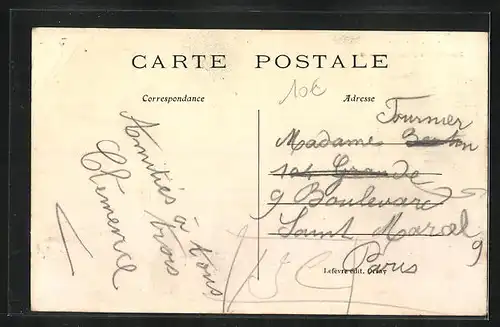 CARTE POSTALE
10€
Correspondance
Adresse
Amitiés à tous
trois
Clémence
Fournier
Madame
104 Grande
9 Boulevard
Saint Marcel 9
Paris
Lefèvre édit.